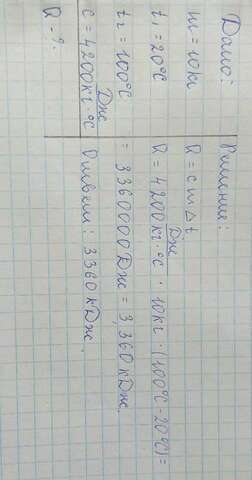 Дано:
m = 10 кг
t₁ = 20°C
t₂ = 100°C
c = 4200 Дж/кг·°C
Q - ?
Решение:
Q = c m Δt
Q = 4200 Дж/кг·°C · 10кг · (100°C - 20°C) =
= 3360000 Дж = 3,360 кДж.
Ответ: 3360 кДж.